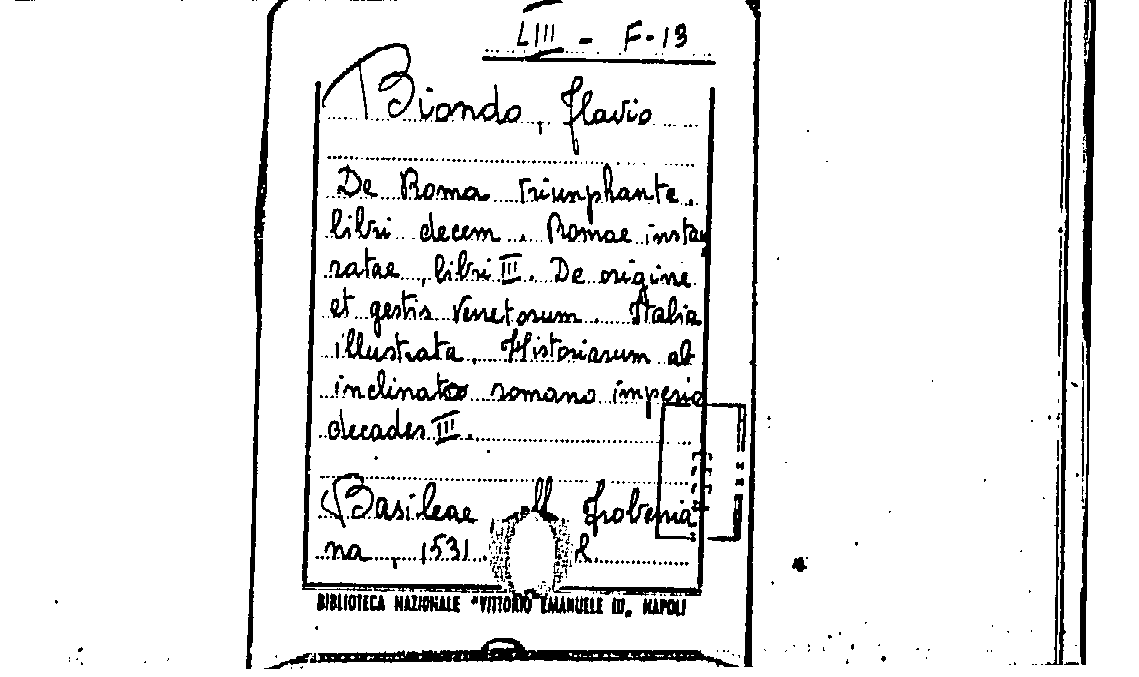 LIII - F-13
Biondo, Flavio
De Roma triunphante.
libri decem. Romae instau
ratae, libri III. De origine
et gestis Venetorum. Italia
illustrata. Historiarum ab
inclinato romano imperio
decades III.
Basileae Frobenia
na, 1531.
BIBLIOTECA NAZIONALE "VITTORIO EMANUELE III" NAPOLI